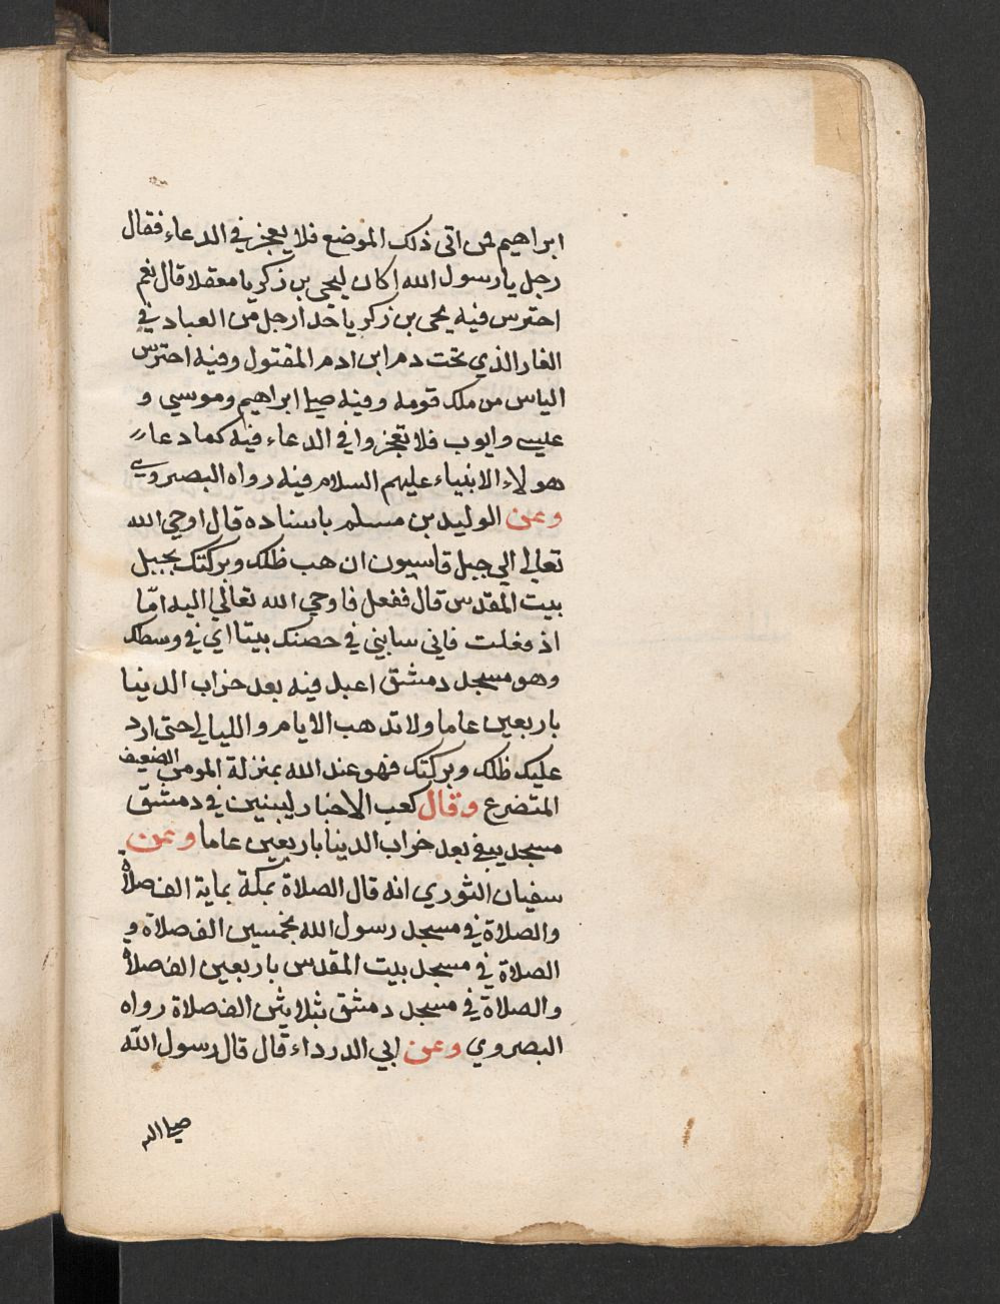 ابراهيم فمن اتى ذلك الموضع فلا يعجز في الدعاء فقال
رجل يا رسول الله اكان ليحي بن زكريا معقلا قال نعم
احترس فيه يحي بن زكريا حدا رجل من العباد في
الغار الذي تحت دم ابن ادم المقتول وفيه احترس
الياس من ملك قومه وفيه صلى ابراهيم وموسى و
عيسى وايوب فلا تعجزوا في الدعاء فيه كما دعا
هولاء الانبياء عليهم السلام فيه رواه البصروي
وعن الوليد بن مسلم باسناده قال اوحي الله
تعالى الى جبل قاسيون ان هب ظلك وبركتك بجبل
بيت المقدس قال ففعل فاوحي الله تعالى اليه امّا
اذ فعلت فاني سابني في حصنك بيتا اي في وسطك
وهو مسجد دمشق اعبد فيه بعد خراب الدينا
باربعين عاما ولا تذهب الايام والليالي حتى ارد
عليك ظلك وبركتك فهو عند الله بمنزلة المومن الضعيف
المتضرع وقال كعب الاحبار ليبنين في دمشق
مسجد يبقى بعد خراب الدينا باربعين عاما وعن
سفيان الثوري انه قال الصلاة بمكة بماية الف صلاة
والصلاة في مسجد رسول الله بخمسين الف صلاة و
الصلاة في مسجد بيت المقدس باربعين الف صلاة
والصلاة في مسجد دمشق بثلاثين الف صلاة رواه
البصروي وعن ابي الدرداء قال قال رسول الله
صلى الله